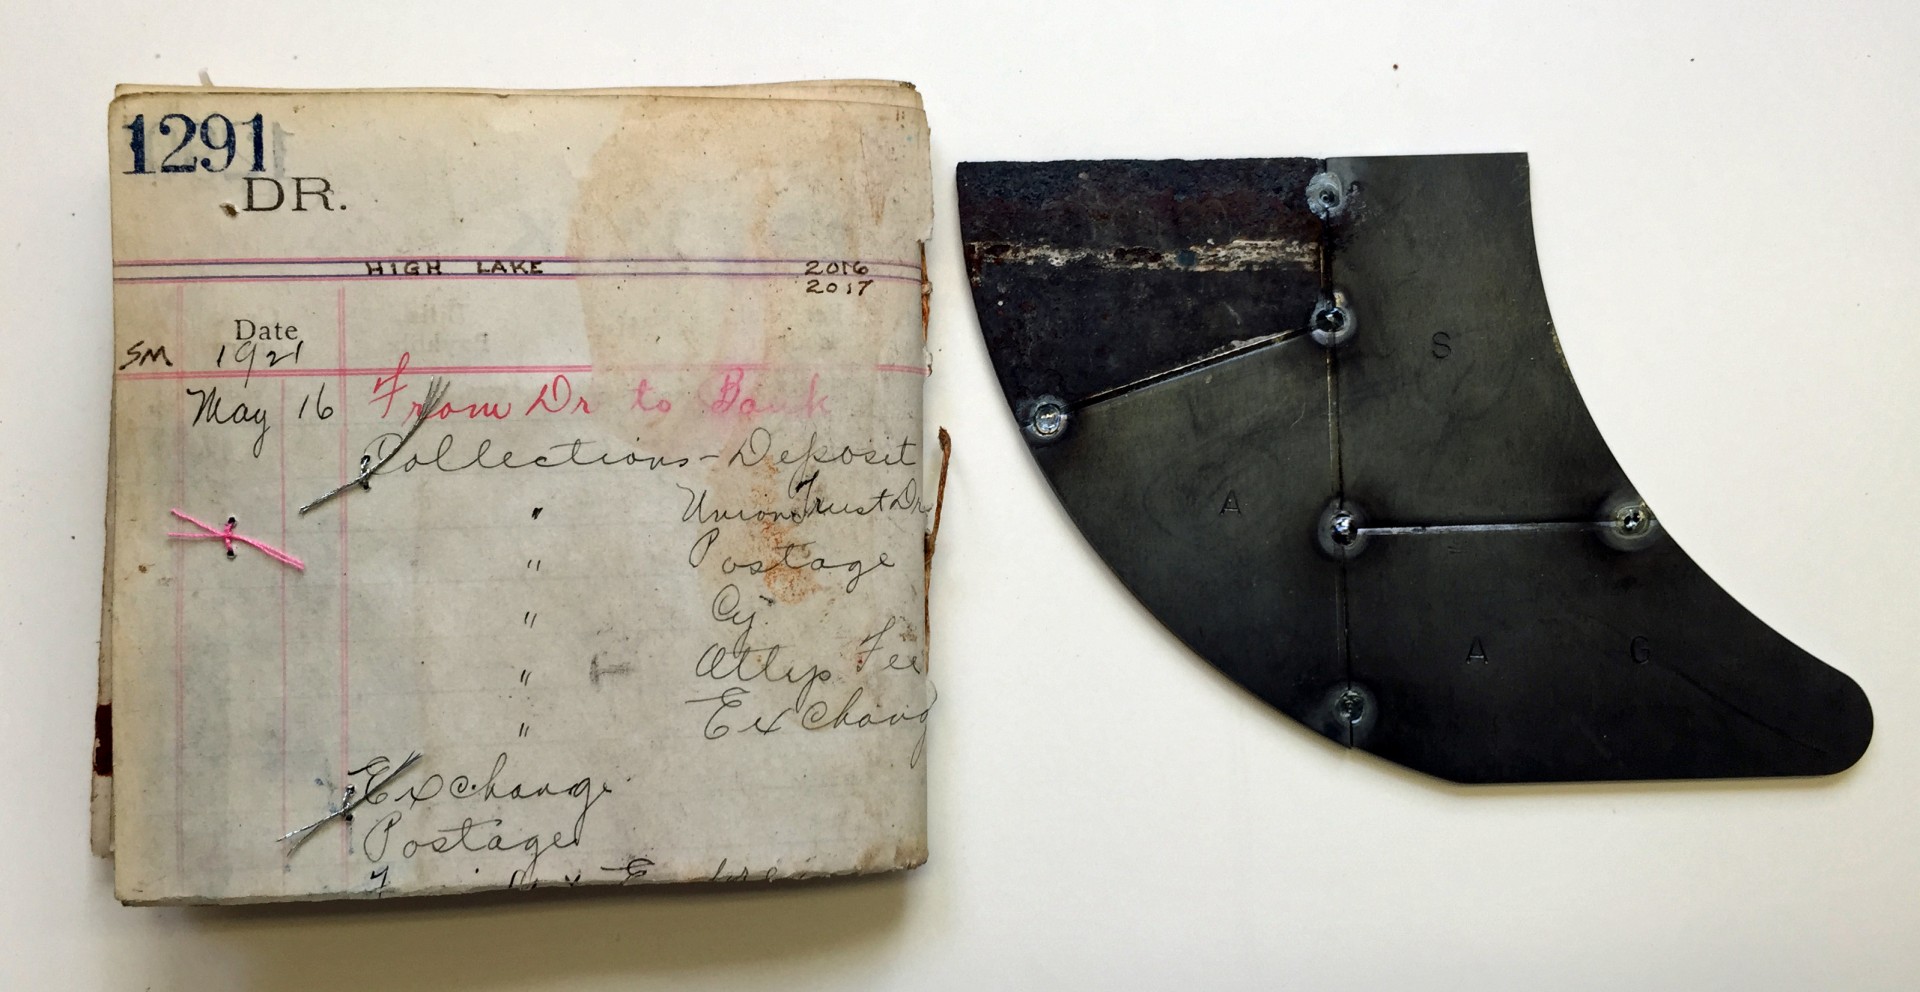 1291
DR.
HIGH LAKE 2016
2017
Date
SM 1921
May 16 From Dr to Bank
Collections - Deposit
" Union Trust Dr
" Postage
" Cy.
" Attys Fee
" Exchang
Exchange
Postage
S
A
A G